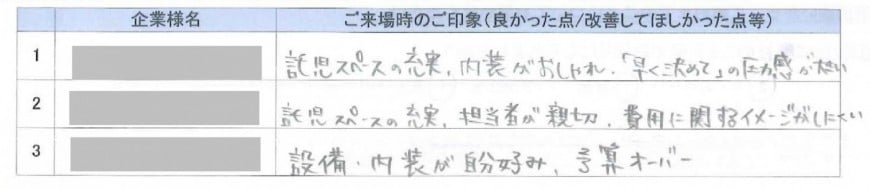 企業様名 ご来場時のご印象(良かった点/改善してほしかった点等)
1 託児スペースの充実、内装がおしゃれ、「早く決めて」の圧力感がない
2 託児スペースの充実、担当者が親切、費用に関するイメージがしにくい
3 設備・内装が自分好み、予算オーバー